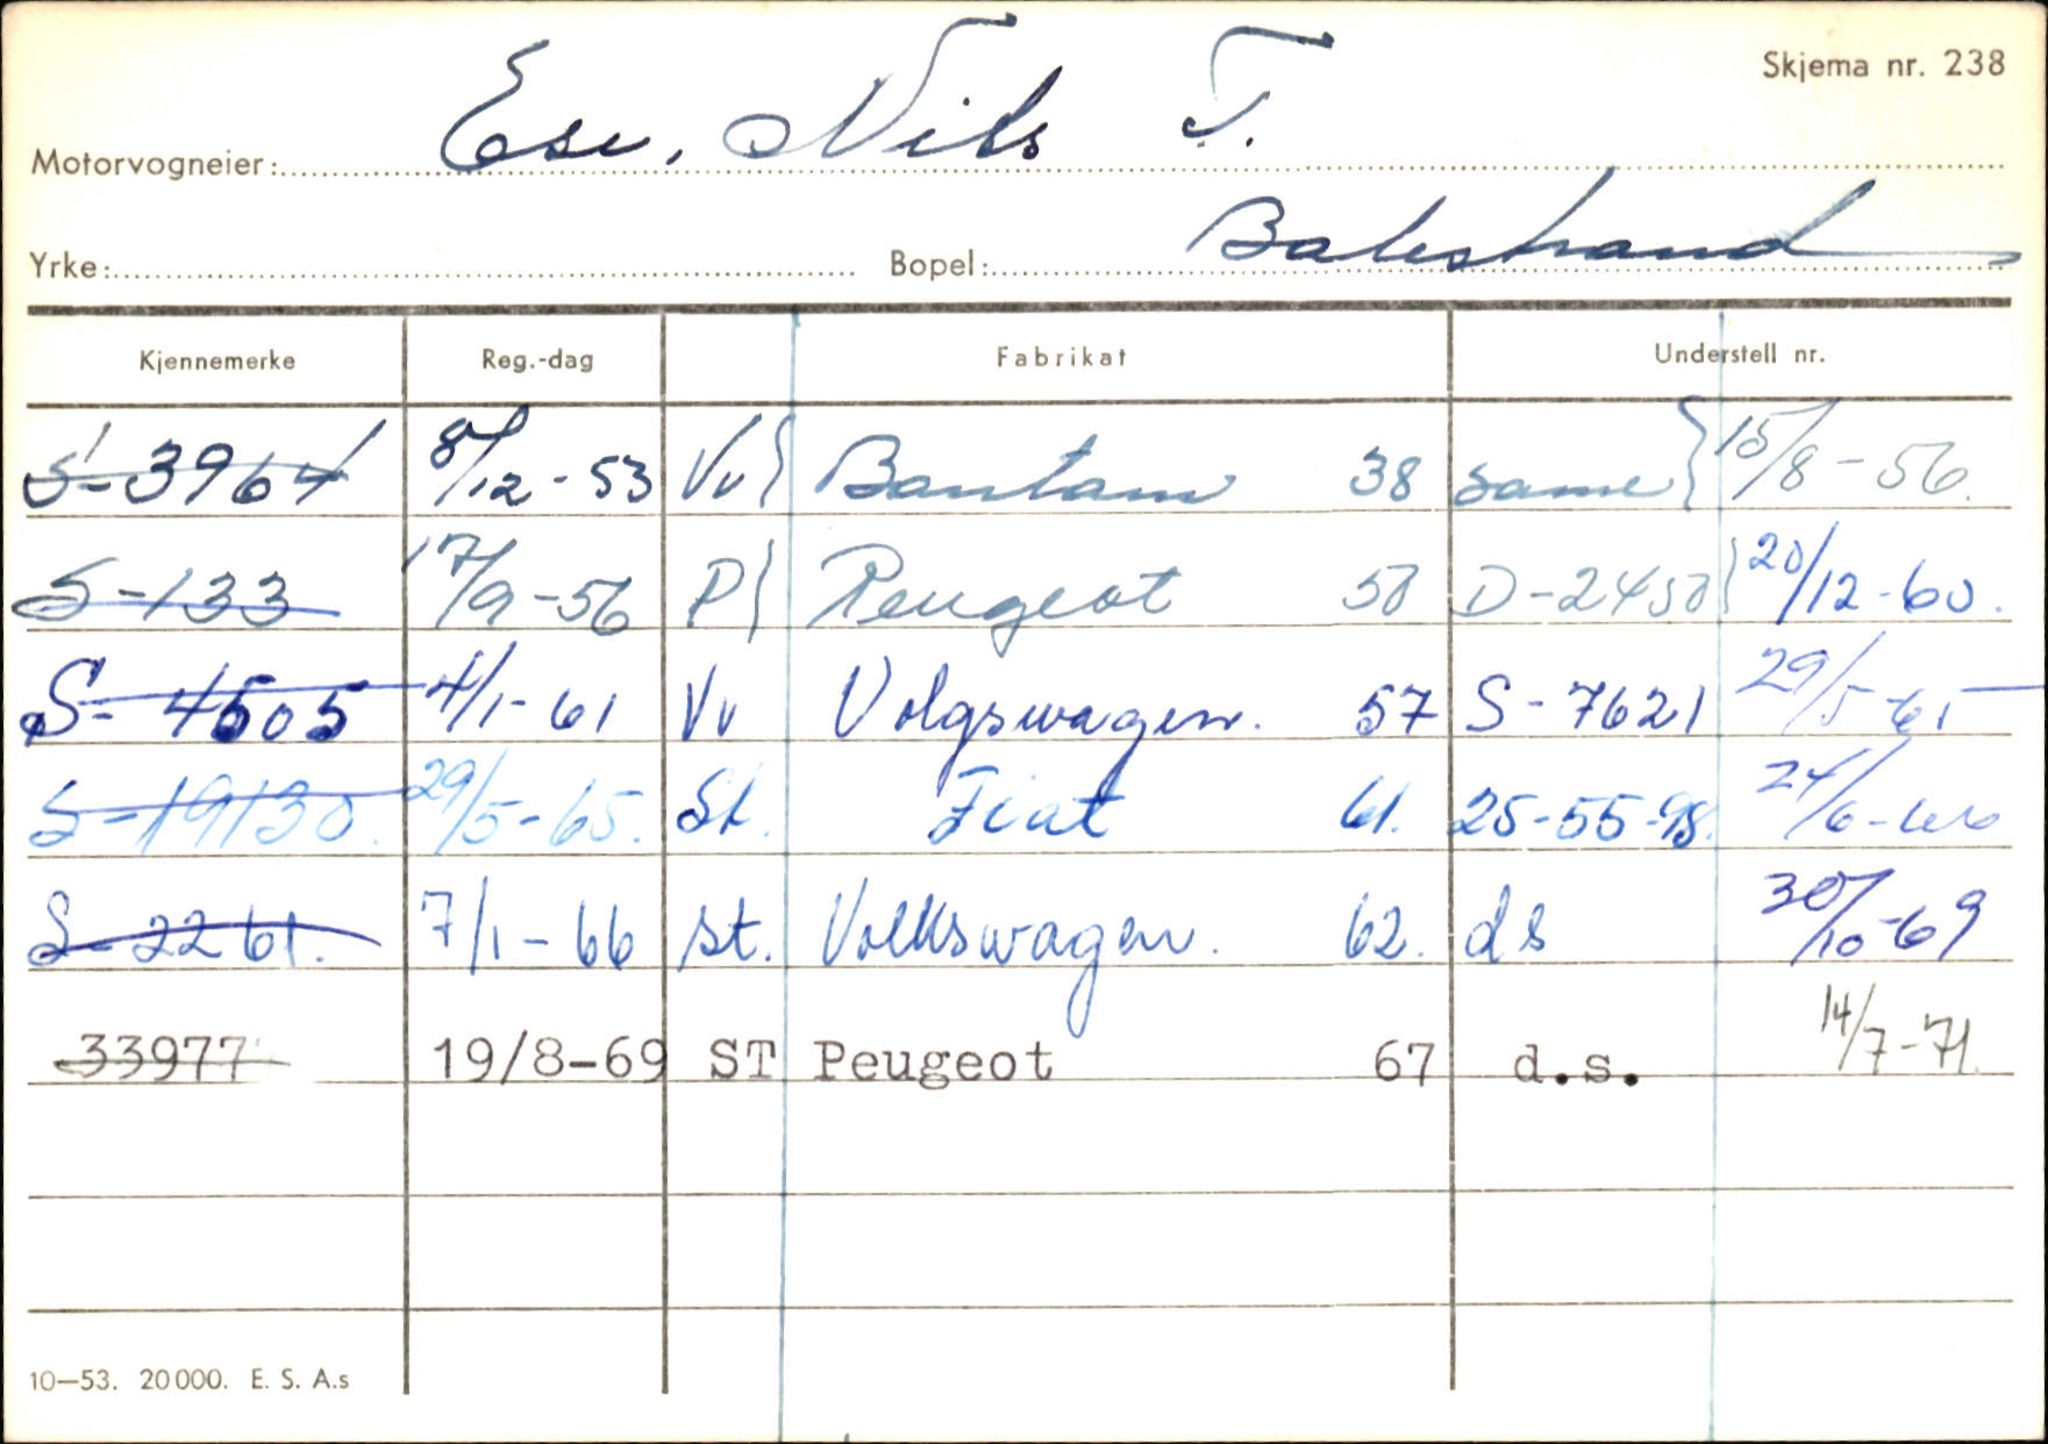 Skjema nr. 238
Motorvogneier: Ese, Nils T.
Yrke: Bopel: Balestrand
Kjennemerke Reg.-dag Fabrikat Understell nr.
S-3964 8/12-53 Vv } Bantam 38 same } 15/8-56.
S-133 17/9-56 P } Peugeot 50 D-2450 } 20/12-60.
S-4505 4/1-61 Vv Volgswagen. 57 S-7621 29/5-61
S-19130. 29/5-65. St. Fiat 61. 25-55-98. 24/6-66
S-2261. 7/1-66 st. Volkswagen. 62. ds 30/10-69
33977 19/8-69 ST Peugeot 67 d.s. 14/7-71.
10-53. 20000. E. S. A.s